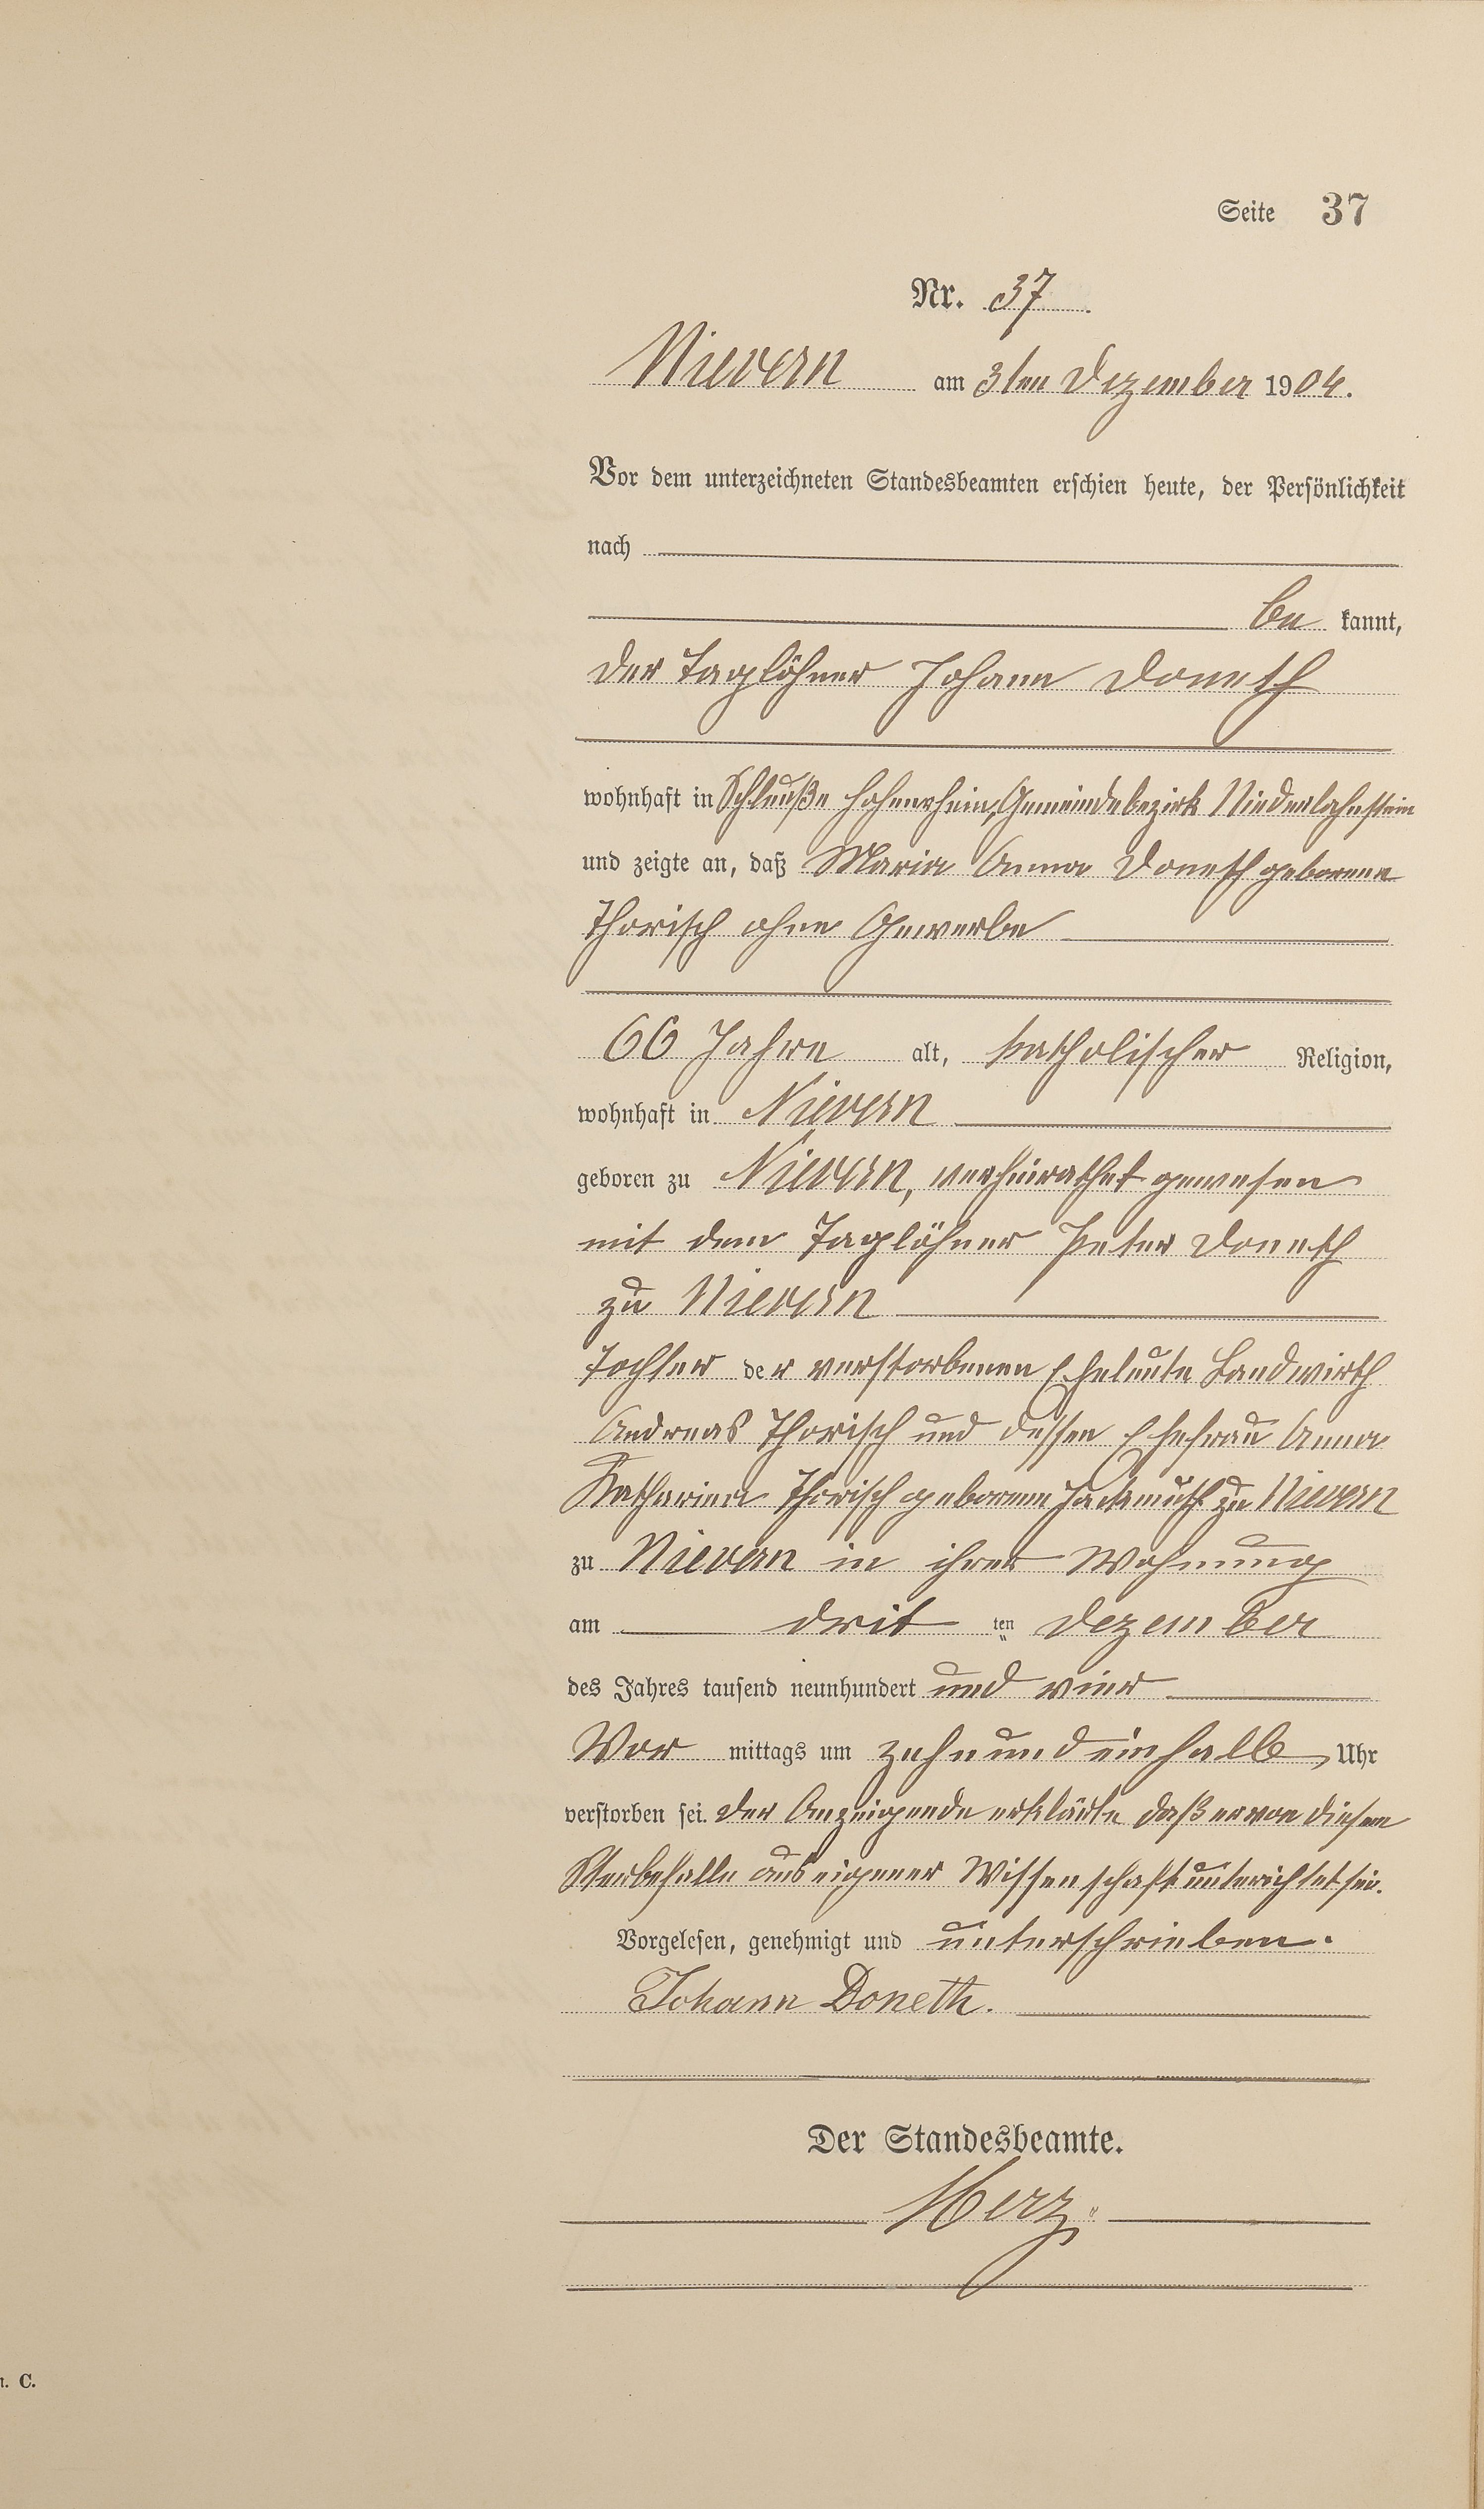 Seite 37
Nr. 37
Nievern am 3ten Dezember 1904.
Vor dem unterzeichneten Standesbeamten erschien heute, der Persönlichkeit
nach
be kannt,
der Taglöhner Johann Doneth
wohnhaft in Schleuße Hohenrhein, Gemeindebezirk Niederlahnstein
und zeigte an, daß Maria Anna Doneth geborene
Thorisch ohne Gewerbe
66 Jahre alt, katholischer Religion,
wohnhaft in Nievern
geboren zu Nievern, verheirathet gewesen
mit dem Taglöhner Peter Doneth
zu Nievern
Tochter der verstorbenen Eheleute Landwirth
Andreas Thorisch und dessen Ehefrau Anna
Katharina Thorisch geborene zu Nievern
zu Nievern in ihrer Wohnung
am drit ten Dezember
des Jahres tausend neunhundert und vier
Vor mittags um zehnundeinhalb Uhr
verstorben sei. Der Anzeigende erklärte daß er von diesem
Sterbefalle aus eigener Wissenschaft unterichtet sei.
Vorgelesen, genehmigt und unterschrieben.
Johann Doneth.
Der Standesbeamte.
Merz
. C.